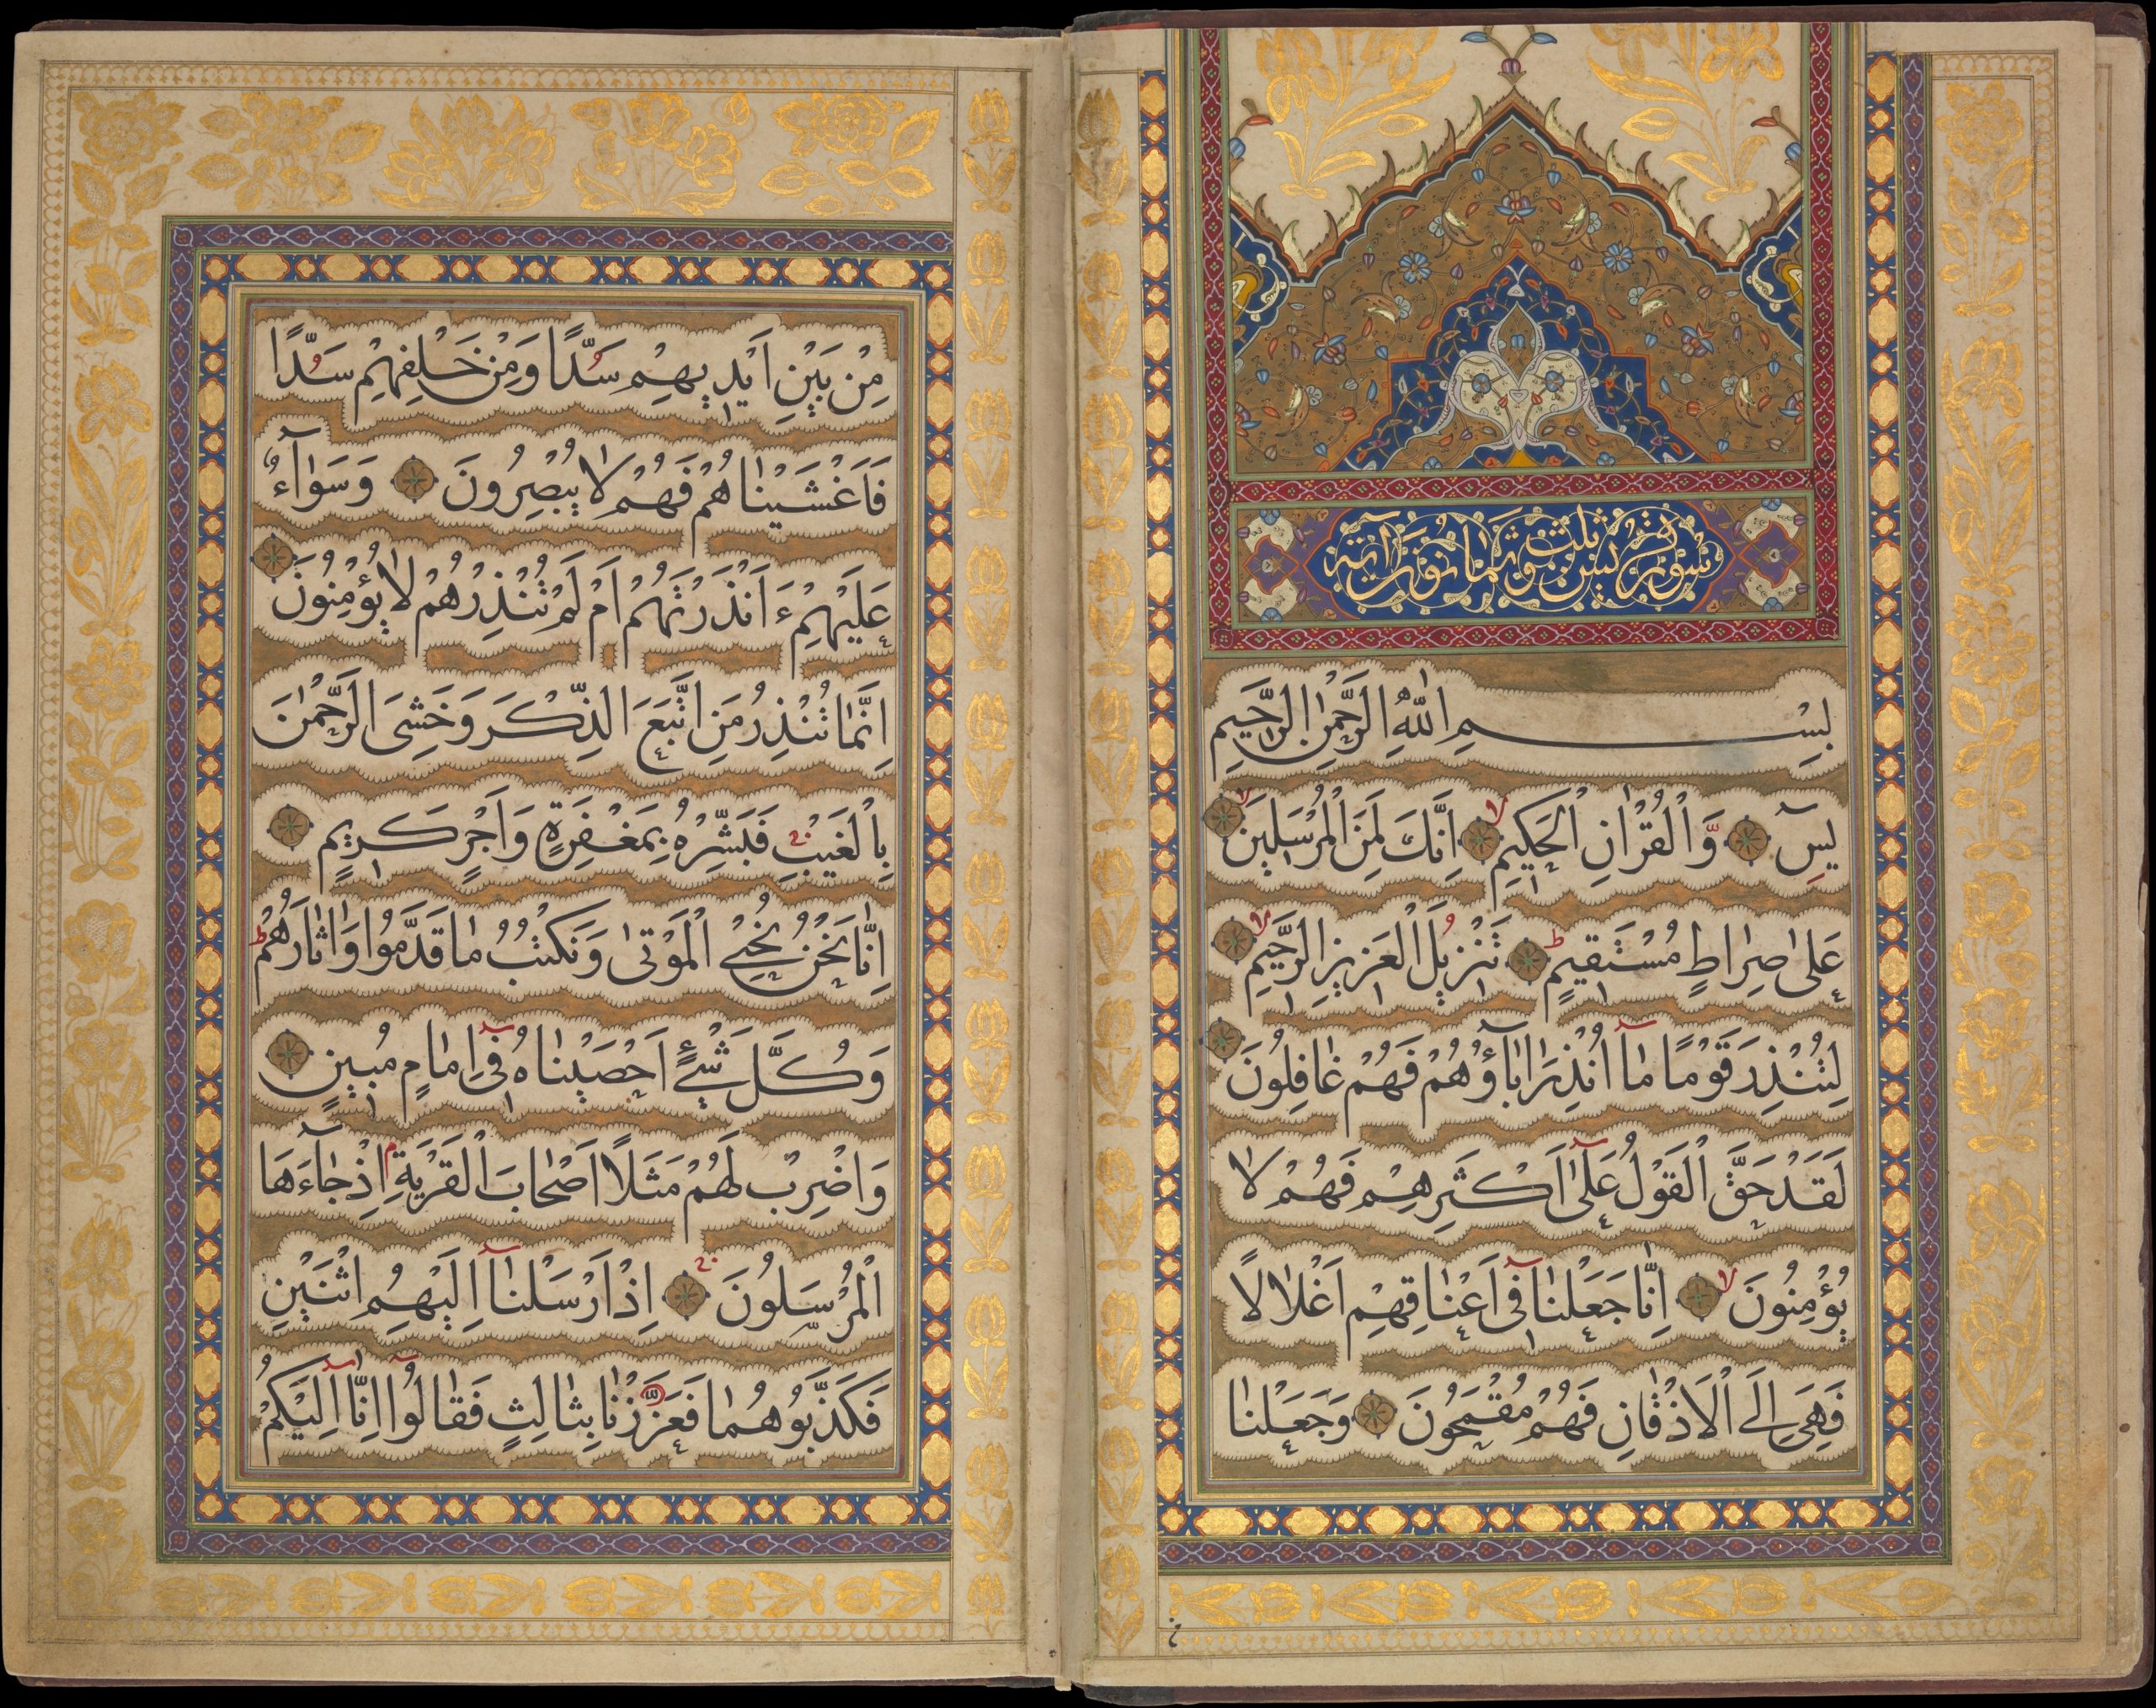 سورة يس ثلث وثمانون آية
بِسْمِ اللّٰهِ الرَّحْمٰنِ الرَّحيمِ
يٰسٓ وَالْقُرْاٰنِ الْحَكيمِ اِنَّكَ لَمِنَ الْمُرْسَلينَ
عَلٰى صِرٰاطٍ مُسْتَقيمٍ تَنْزيلَ الْعَزيزِ الرَّحيمِ
لِتُنْذِرَ قَوْمًا مٰٓا اُنْذِرَ اٰبٰٓاؤُهُمْ فَهُمْ غٰافِلُونَ
لَقَدْ حَقَّ الْقَوْلُ عَلٰٓى اَكْثَرِهِمْ فَهُمْ لٰا
يُؤْمِنُونَ اِنّٰا جَعَلْنٰا فٓى اَعْنٰاقِهِمْ اَغْلٰالًا
فَهِىَ اِلَى الْاَذْقٰانِ فَهُمْ مُقْمَحُونَ وَجَعَلْنٰا
مِنْ بَيْنِ اَيْديهِمْ سَدًّا وَمِنْ خَلْفِهِمْ سَدًّا
فَاَغْشَيْنٰاهُمْ فَهُمْ لٰا يُبْصِرُونَ وَسَوٰٓاءٌ
عَلَيْهِمْ ءَاَنْذَرْتَهُمْ اَمْ لَمْ تُنْذِرْهُمْ لٰا يُؤْمِنُونَ
اِنَّمٰا تُنْذِرُ مَنِ اتَّبَعَ الذِّكْرَ وَخَشِىَ الرَّحْمٰنَ
بِالْغَيْبِ فَبَشِّرْهُ بِمَغْفِرَةٍ وَاَجْرٍ كَريمٍ
اِنّٰا نَحْنُ نُحْيِى الْمَوْتٰى وَنَكْتُبُ مٰا قَدَّمُوا وَاٰثٰارَهُمْ
وَكُلَّ شَىْءٍ اَحْصَيْنٰاهُ فٓى اِمٰامٍ مُبينٍ
وَاضْرِبْ لَهُمْ مَثَلًا اَصْحٰابَ الْقَرْيَةِ اِذْ جٰٓاءَهَا
الْمُرْسَلُونَ اِذْ اَرْسَلْنٰٓا اِلَيْهِمُ اثْنَيْنِ
فَكَذَّبُوهُمٰا فَعَزَّزْنٰا بِثٰالِثٍ فَقٰالُٓوا اِنّٰٓا اِلَيْكُمْ